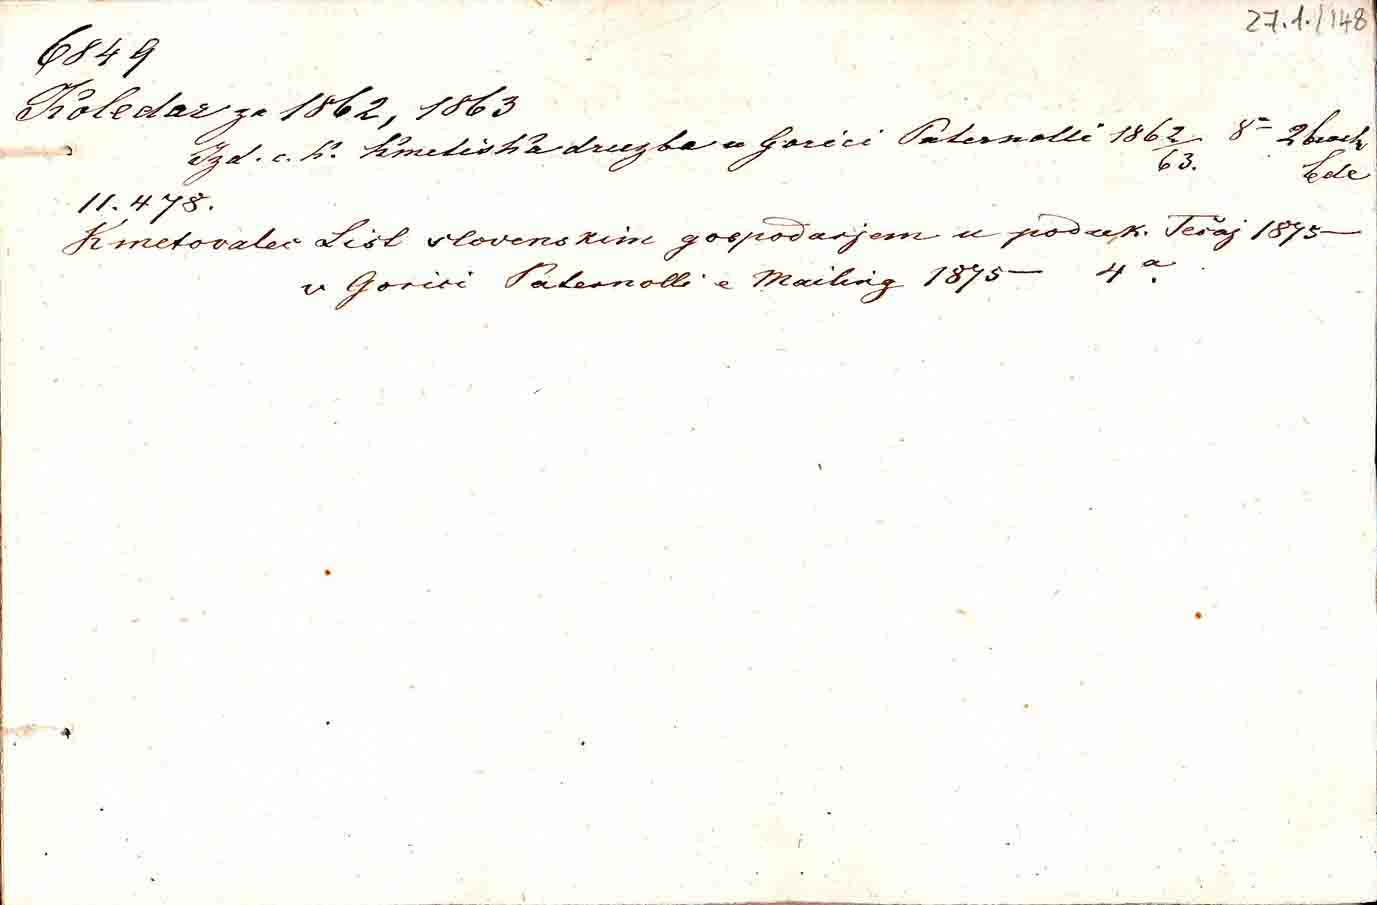 27.1./148
6849
Koledar za 1862, 1863
Izd. c. k. Kmetiska druzba u Gorici Paternolli 1862 8° 2 broch
63.
11.478.
Kmetovalec List slovenskim gospodarjem u poduk. Tečaj 1875—
v Gorici Paternolli e Mailing 1875— 4°.